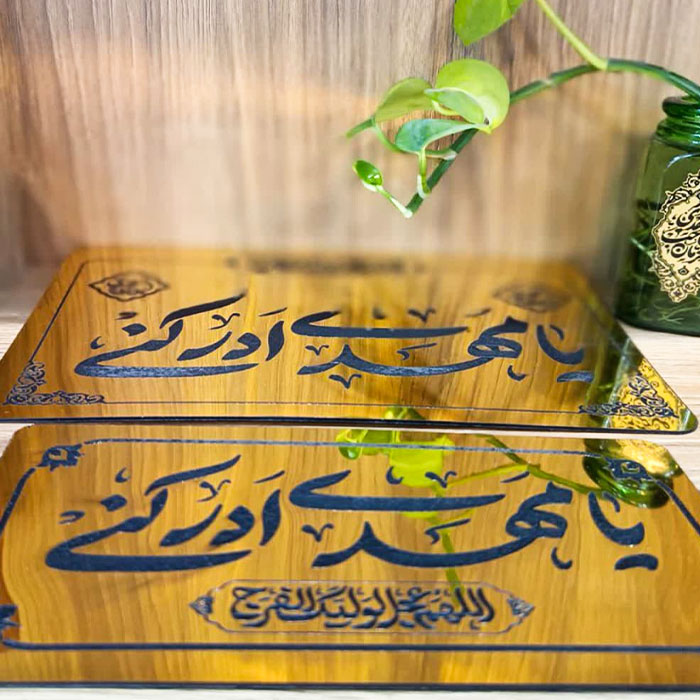 یا مهدی ادرکنی
یا مهدی ادرکنی
اللهم عجل لولیک الفرج